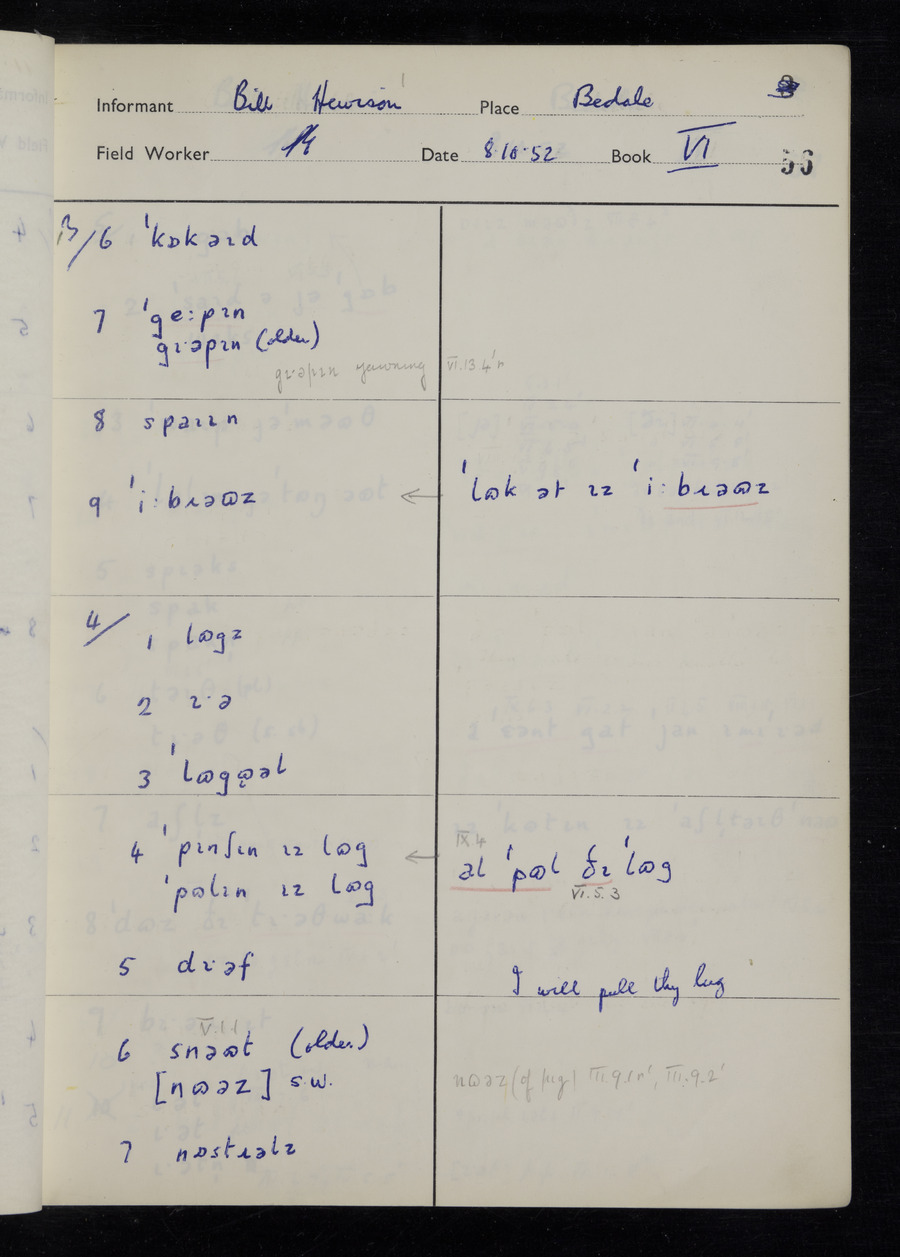 Informant Bill Hewison Place Bedale
Field Worker Date 8.10.52 Book VI 56
3/6 ˈkɒkəɪd
7 ˈgeːpɪn
gɪˑəpɪn (older)
gɪˑəpɪn yawning VI.13.4'n
8 spaɪɪn
9 ˈiːbɹəʊz ← ˈlʊk ət ɪz ˈiːbɹəʊz
4/ 1 lʊgz
2 ɪˑə
3 ˈlʊgʊəl
4 ˈpɪnʃɪn ɪz lʊg ← IX 4
əl ˈpʊl ðɪ ˈlʊg
VI.5.3
ˈpʊlɪn ɪz lʊg
5 dɪˑəf
I will pull thy lug
V.1.1
6 snəʊt (older)
[nʊəz] s.w. nʊəz (of jug) III.9.1n', III.9.2'
7 nɒstɹəlz